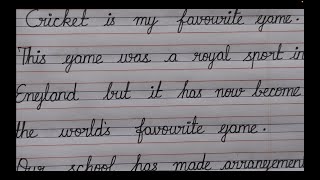 Cricket is my favourite game.
This game was a royal sport in
England but it has now become
the world's favourite game.
Our school has made arrangement